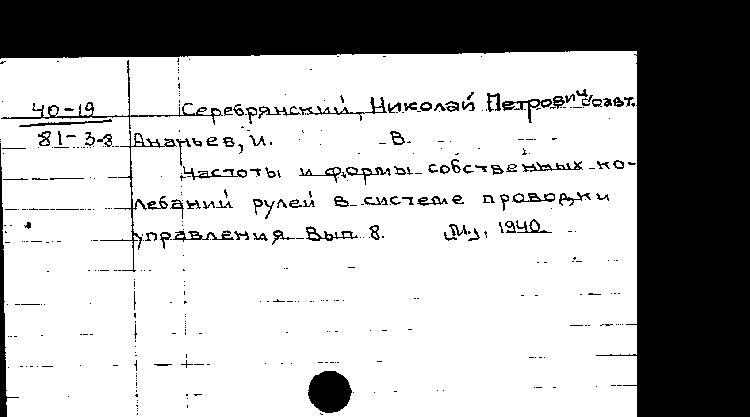 40-19 Серебрянский, Николай Петрович соавт.
81-3-8 Ананьев, И. В.
Частоты и формы собственных ко-
лебаний рулей в системе проводки
управления. Вып. 8. [М.], 1940.